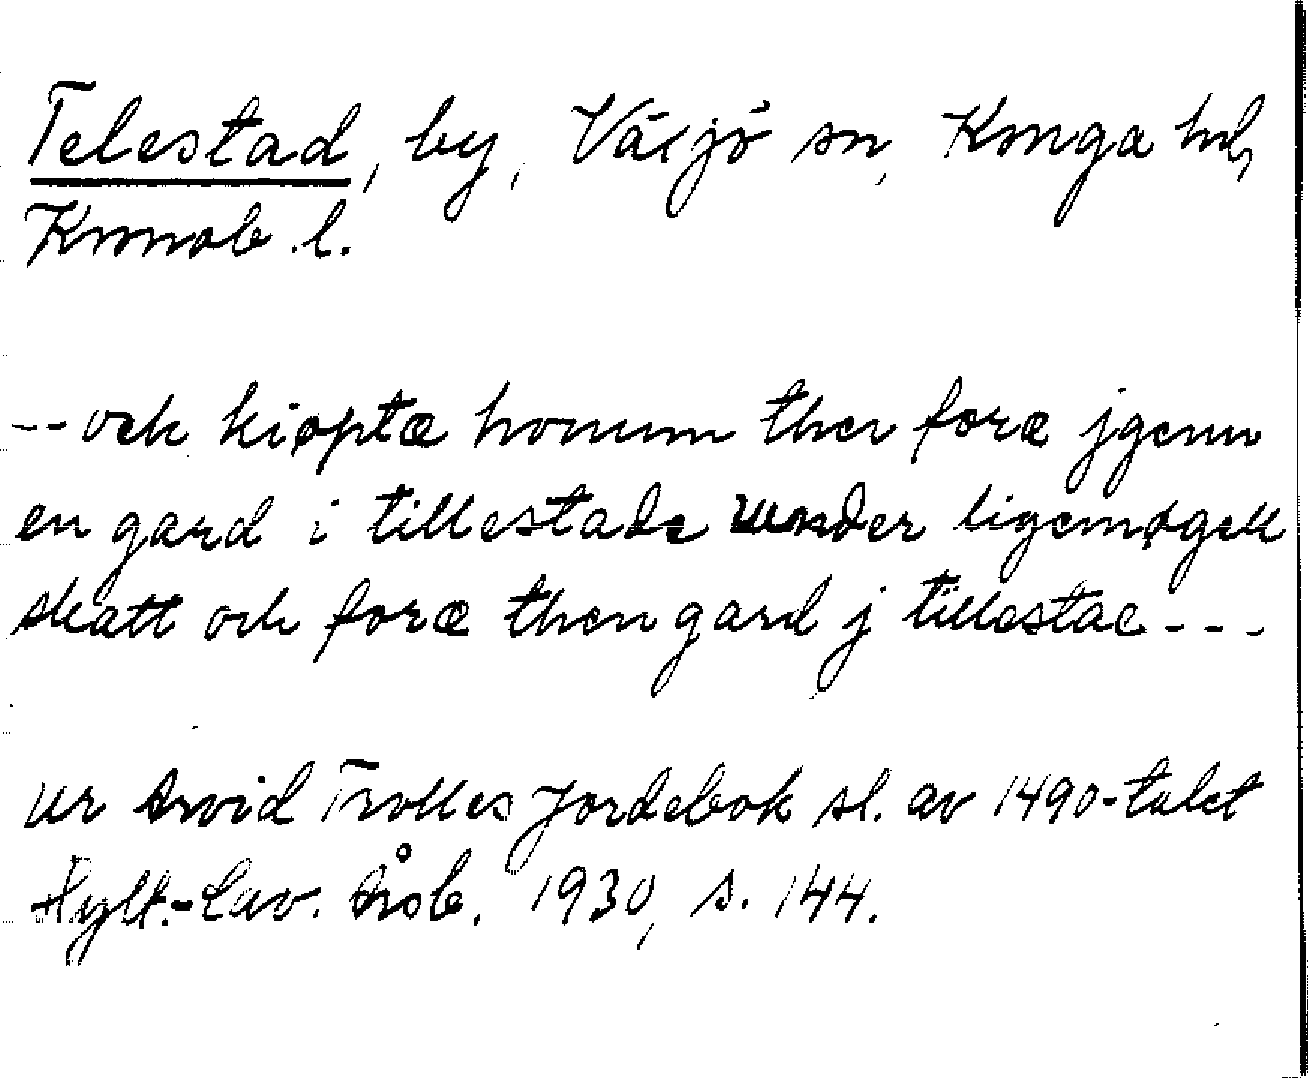 Telestad, by, Växjö sn, Konga hd,
Kronob. l.
-- och kiøptæ honum ther foræ jgenn
en gard i tillestade wnder ligemøgell
skatt och foræ then gard j tillestæ ---
ur Arvid Trolles Jordebok sl. av 1490-talet
Hylt.-Cav. Årsb. 1930, s. 144.